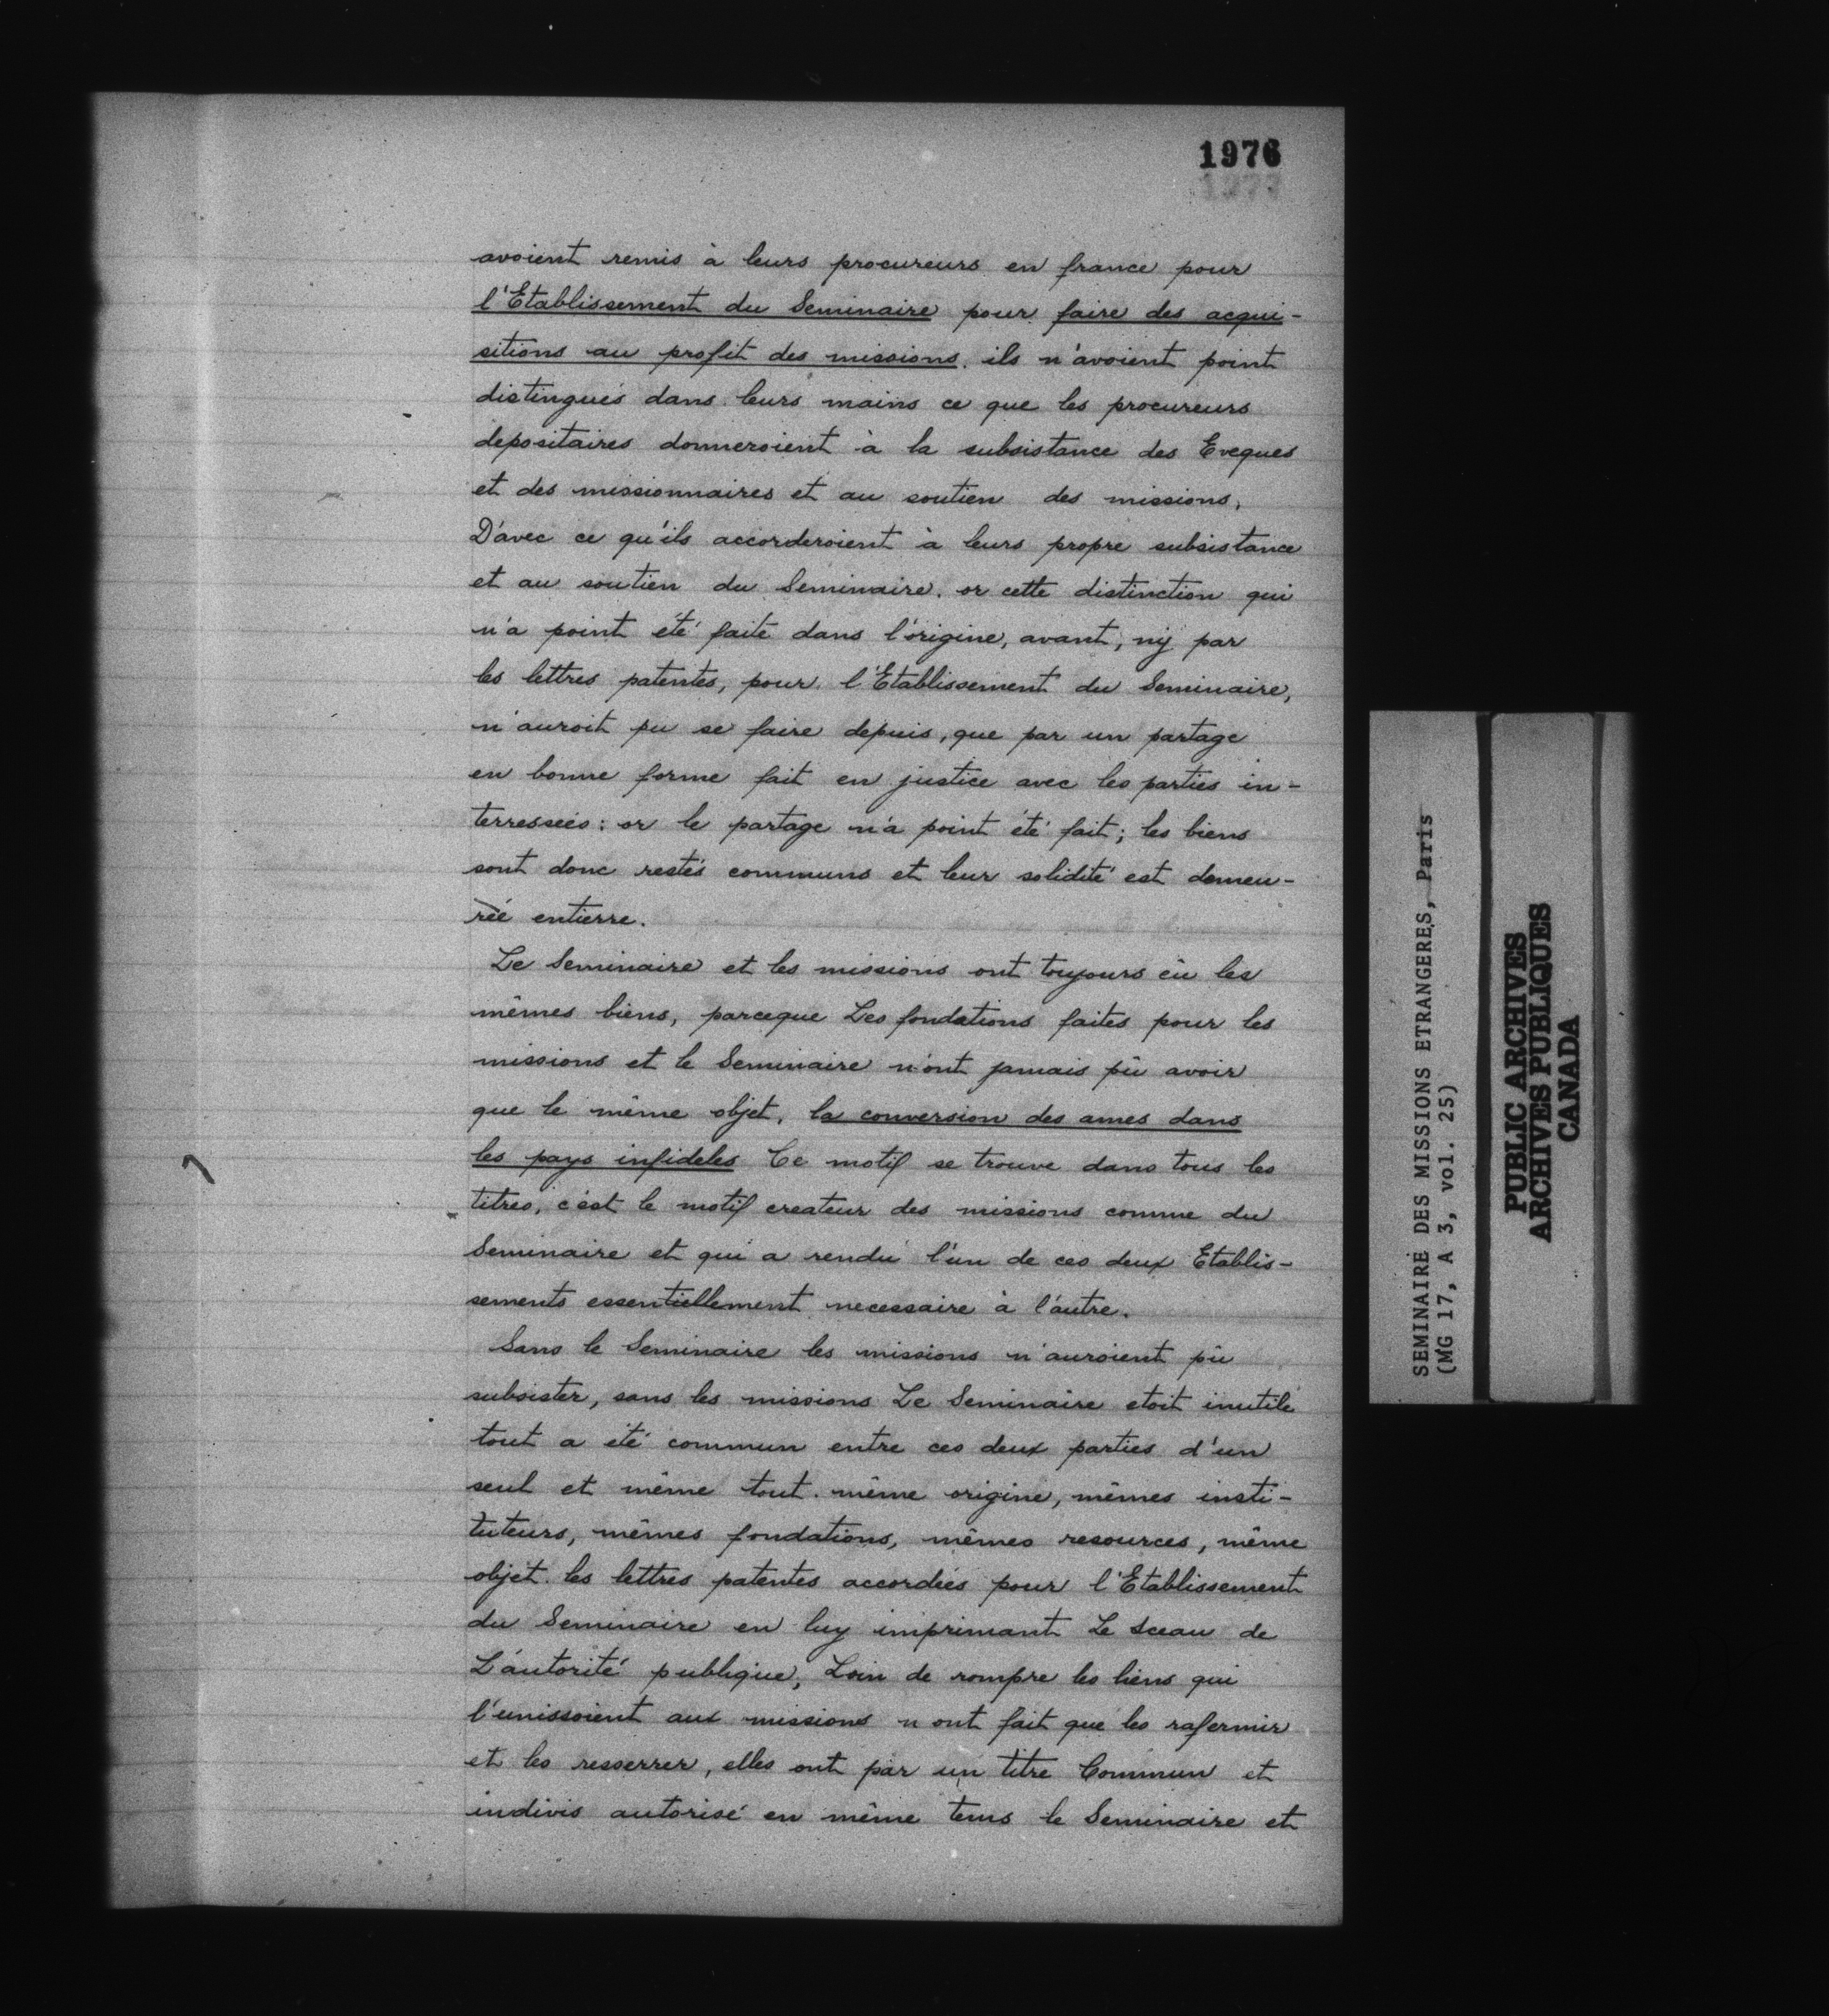 1976
avoient remis à leurs procureurs en france pour
l'Etablissement du Seminaire pour faire des acqui-
sitions au profit des missions. ils n'avoient point
distingués dans leurs mains ce que les procureurs
depositaires donneroient à la subsistance des Eveques
et des missionnaires et au soutien des missions,
D'avec ce qu'ils accorderoient à leurs propre subsistance
et au soutien du Seminaire. or cette distinction qui
n'a point été faite dans l'origine, avant, nÿ par
les lettres patentes, pour l'Etablissement du Seminaire,
n'auroit pu se faire depuis, que par un partage
en bonne forme fait en justice avec les parties in-
terressées: or le partage n'a point été fait; les biens
sont donc restés communs et leur solidité est demeu-
rée entierre.
Le Seminaire et les missions ont toujours èu les
mêmes biens, parceque Les fondations faites pour les
missions et le Seminaire n'ont jamais pû avoir
que le même objet, la conversion des ames dans
les pays infideles Ce motif se trouve dans tous les
titres, c'est le motif createur des missions comme du
Seminaire et qui a rendu l'un de ces deux Etablis-
sements essentiellement necessaire à l'autre.
Sans le Seminaire les missions n'auroient pû
subsister, sans les missions Le Seminaire etoit inutile
tout a été commun entre ces deux parties d'un
seul et même tout. même origine, mêmes insti-
tuteurs, mêmes fondations, mêmes resources, même
objet. les lettres patentes accordées pour l'Etablissement
du Seminaire en luy imprimant Le sceau de
L'autorité publique, Loin de rompre les liens qui
l'unissoient aux missions n'ont fait que les rafermir
et les resserrer, elles ont par un titre Commun et
indivis autorisé en même tems le Seminaire et
SEMINAIRE DES MISSIONS ETRANGERES, Paris
(MG 17, A 3, vol. 25)
PUBLIC ARCHIVES
ARCHIVES PUBLIQUES
CANADA